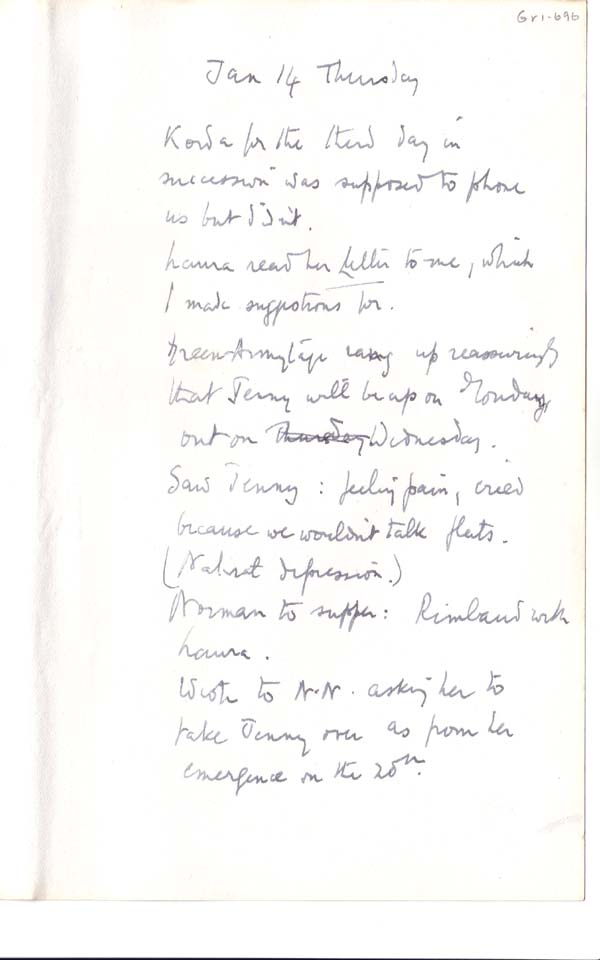 Gr1-696
Jan 14 Thursday
Korda for the third day in
succession was supposed to phone
us but didn't.
Laura read her letter to me, which
I made suggestions for.
Green-Armytage rang up reassuringly
that Jenny will be up on Monday,
out on Thursday Wednesday.
Saw Jenny: feeling pain, cried
because we wouldn't talk flats.
(Natural depression.)
Norman to supper: Rimbaud with
Laura.
Wrote to N.N. asking her to
take Jenny over as from her
emergence on the 20th.